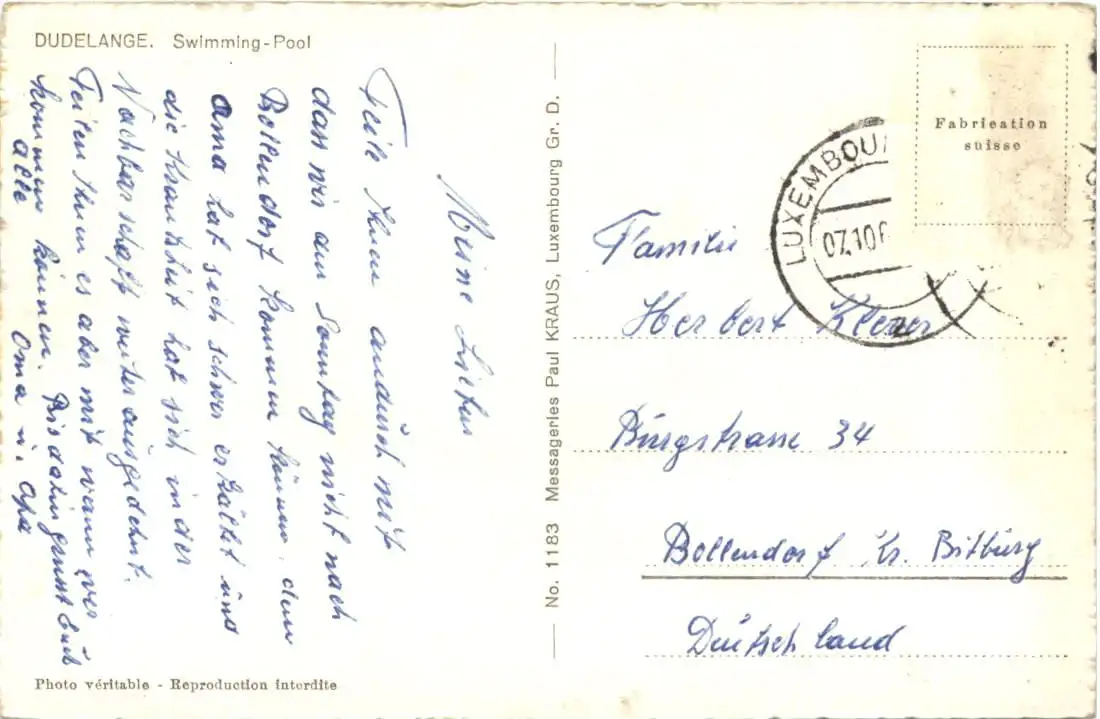 DUDELANGE. Swimming-Pool
Meine Lieben
Teile Ihnen andurch mit
dass wir am Sonntag nicht nach
Bollendorf kommen können, den
Oma hat sich schwer erkältet und
die Krankheit hat sich in der
Nachbarschaft weiter ausgedehnt.
Teilen Ihnen es aber mit wann wir
kommen können. Bis dahin grüsst Euch
alle Oma u. Opa
Photo véritable - Reproduction interdite
No. 1183 Messageries Paul KRAUS, Luxembourg Gr. D.
Fabrication
suisse
LUXEMBOU
07.10
Familie
Herbert
Burgstrasse 34
Bollendorf Kr. Bitburg
Deutschland